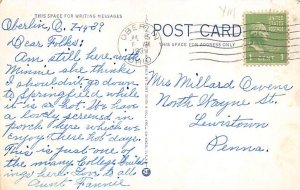 THIS SPACE FOR WRITING MESSAGES
Oberlin, O.
Dear Folks:
Am still here with
Minnie. She thinks
I shouldn't go down
to Springfield while
it is so hot. We have
a lovely screened in
porch here which we
enjoy these hot days.
This is just one of
the many College build-
ings here. Love to all
Aunt Fannie
POST CARD
THIS SPACE FOR ADDRESS ONLY
OBERLIN
1939
1 CENT 1
Mrs Millard Owens
North Wayne St.
Lewistown
Penna.